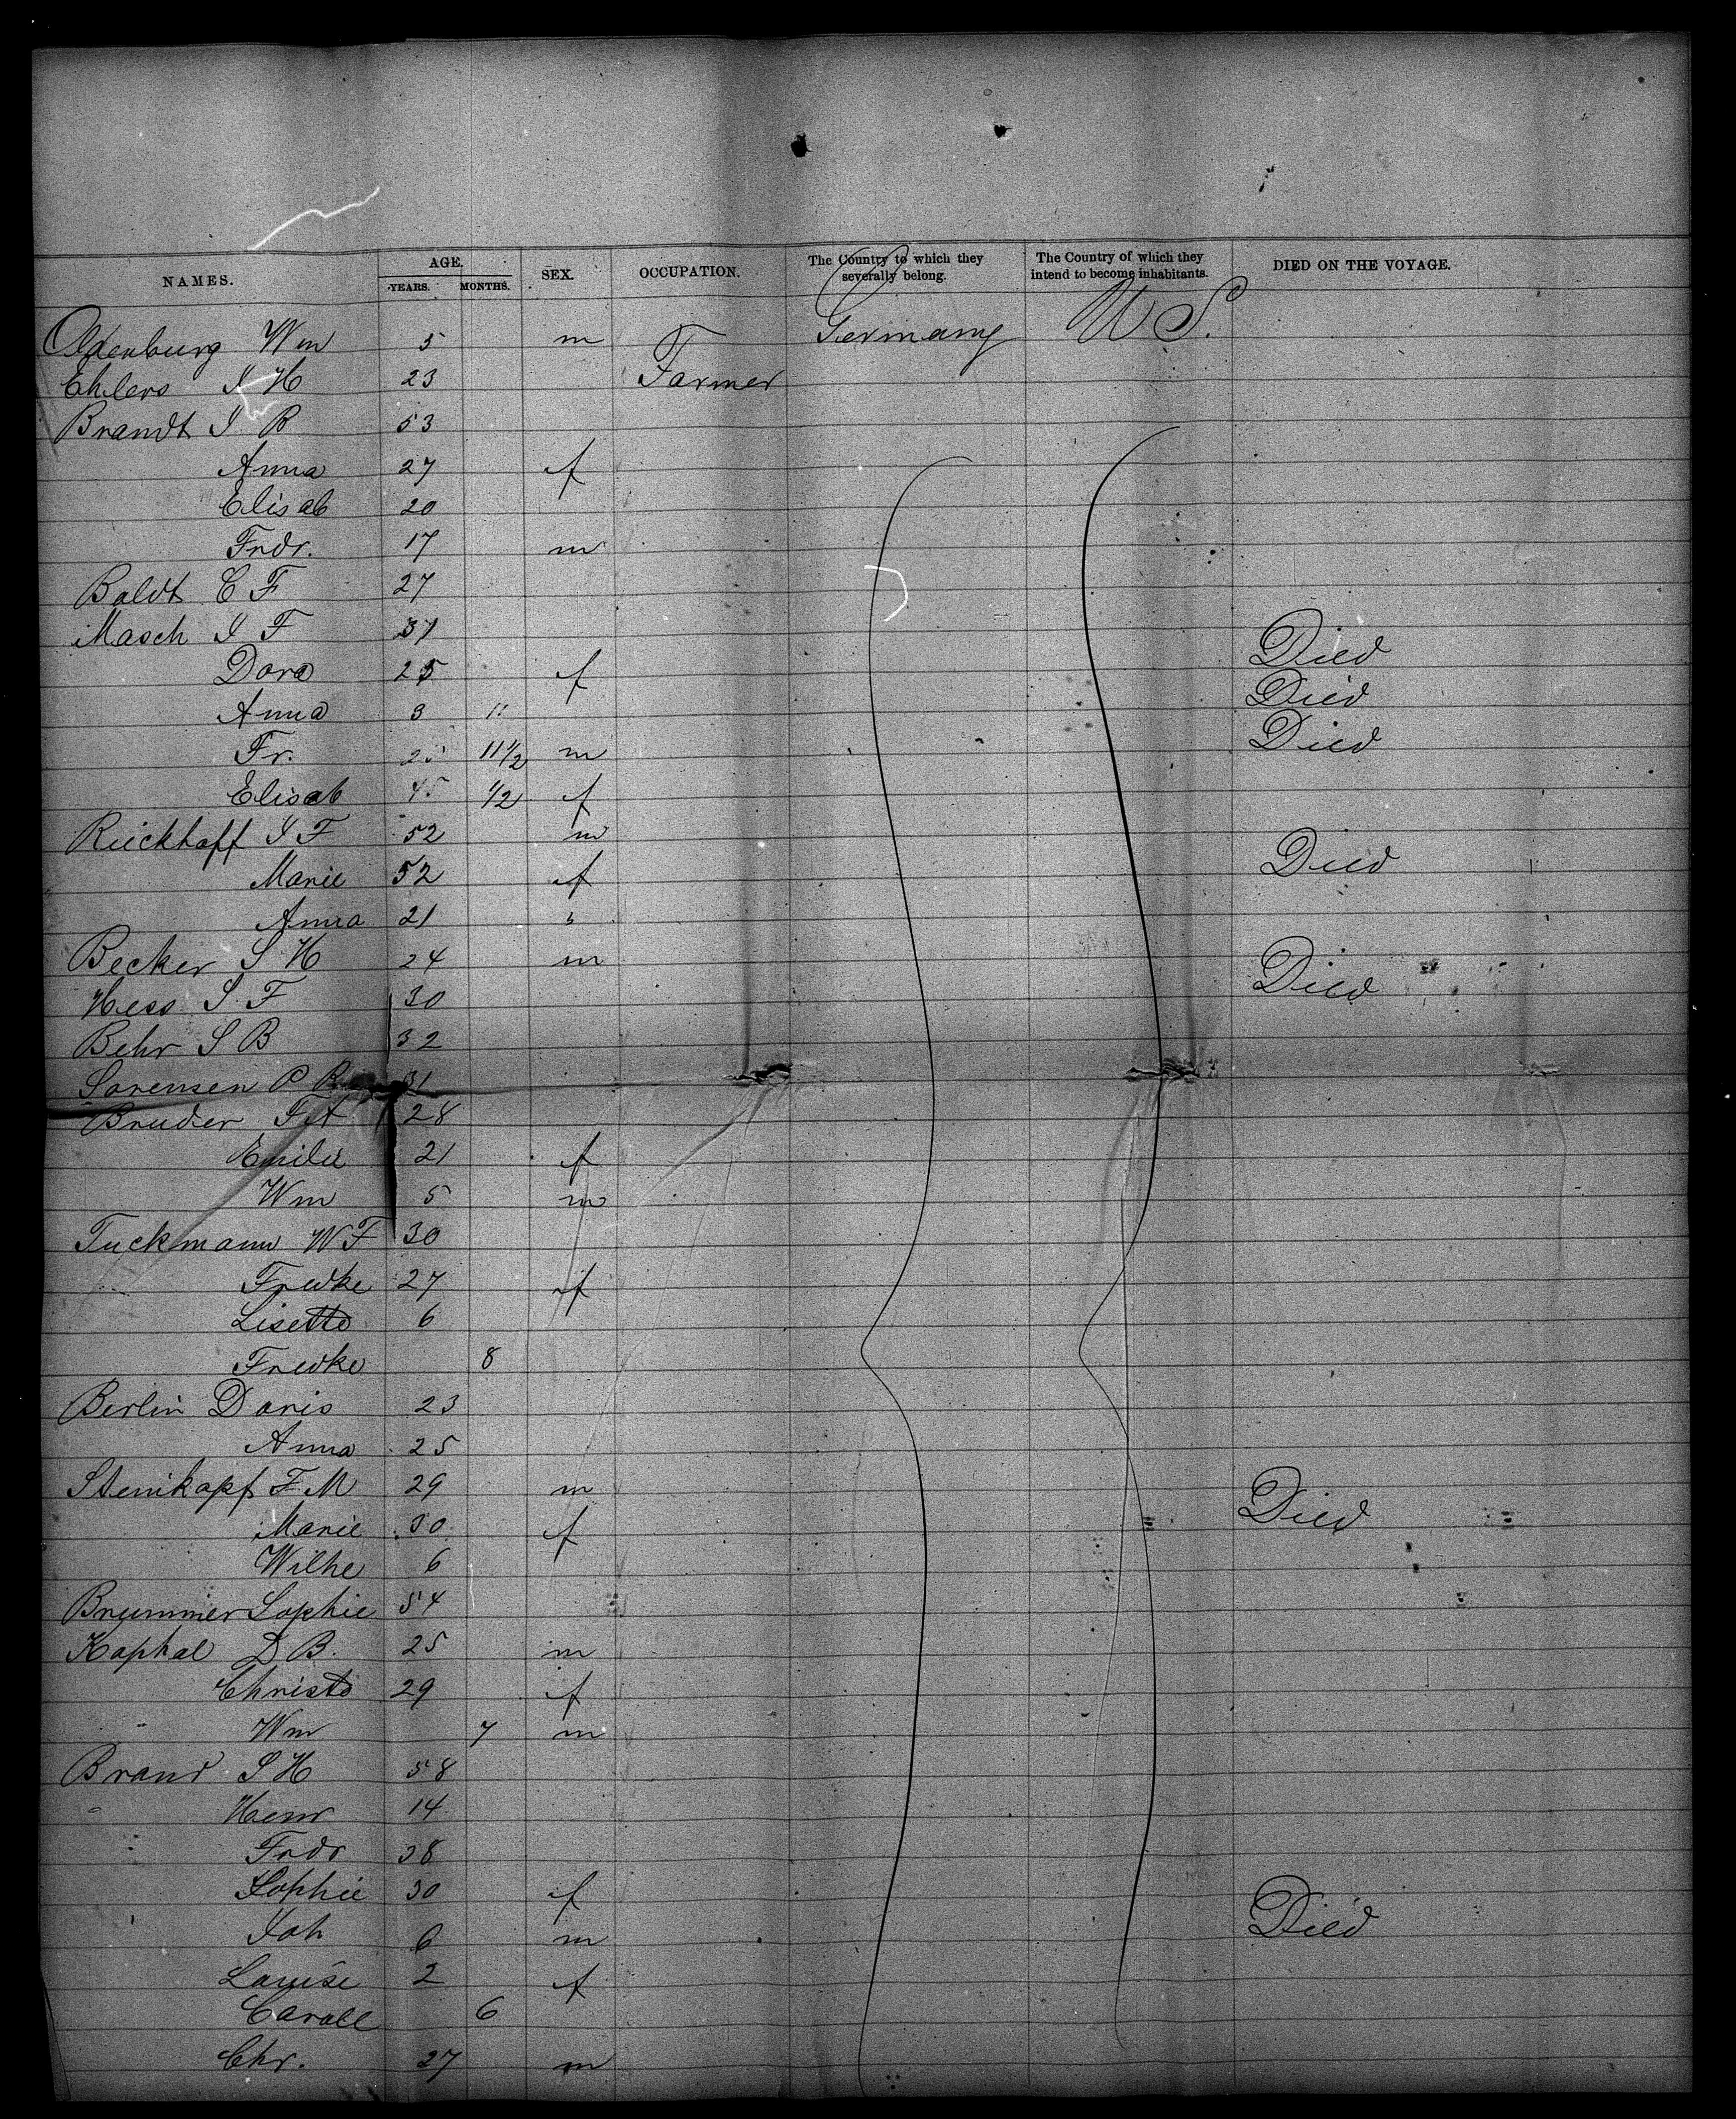 NAMES. AGE. YEARS. MONTHS. SEX. OCCUPATION. The Country to which they severally belong. The Country of which they intend to become inhabitants. DIED ON THE VOYAGE.
Oldenburg Wm 5 m Germany U S.
Ehlers J H 23 Farmer
Brandt J B 53
Anna 27 f
Elisab 20
Frdr. 17 m
Boldt C F 27
Masch J F 31 Died
Dora 25 f Died
Anna 3 11 Died
Fr. 11 1/2 m
Elisab 1/2 f
Rieckhoff J F 52 m
Marie 52 f Died
Anna 21
Becker J H 24 m
Hess J F 30 Died
Behr J B 32
Sorensen P 31
Bruder F A 28
Emilie 21 f
Wm 5 m
Tuckmann W F 30
Fredke 27 f
Lisette 6
Fredke 8
Berlin Doris 23
Anna 25
Steinkopf F M 29 m
Marie 30 f Died
Wilhe 6
Brummer Sophie 54
Kaphal D B. 25 m
Christe 29 f
" Wm 7 m
Brand J H 58
" Henr 14
" Frdr 38
Sophie 30 f
Joh 6 m Died
Louise 2 f
Caroll 6
Chr. 27 m